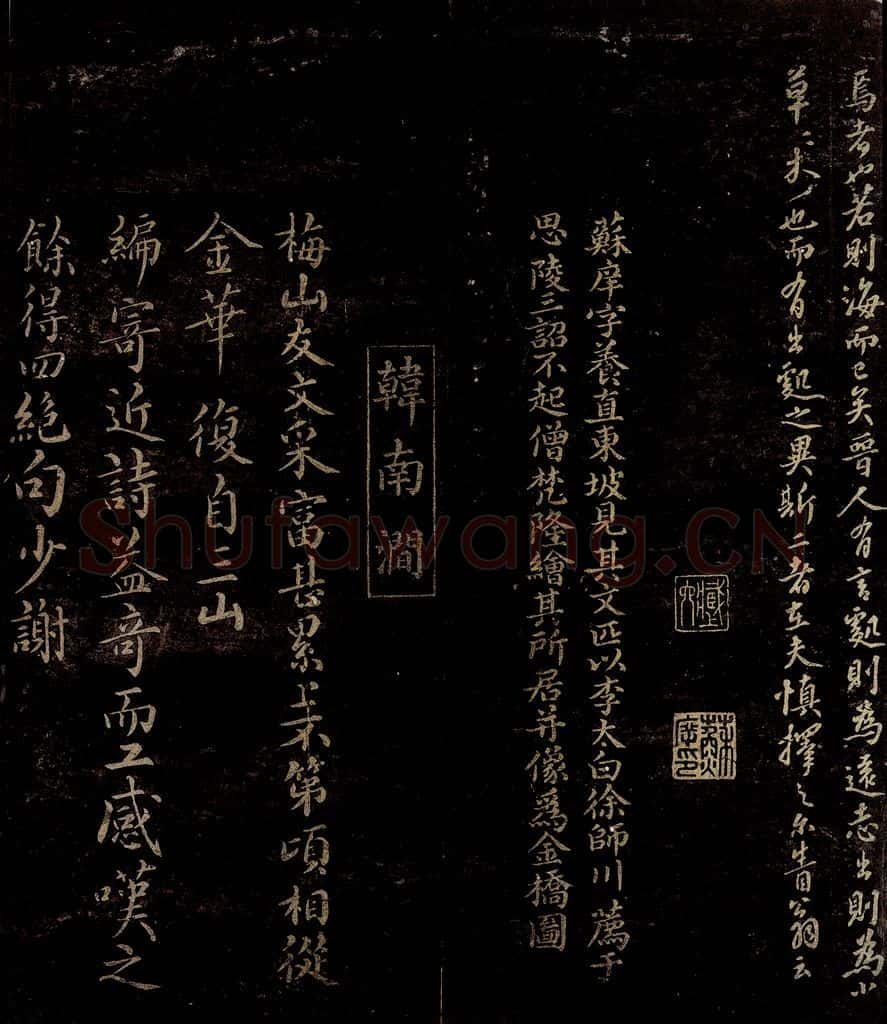 焉者也若則海而已矣晉人有言處則為遠志出則為小
草也而有出處之異斯二者在夫慎擇之尔眚翁云
蘇庠字養直東坡見其文匹以李太白徐師川薦于
思陵三詔不起僧梵隆繪其所居并像爲金橋圖
韓南澗
梅山友文采富甚第頃相從
金華 復自三山
編寄近詩益奇而工感嘆之
餘得四絕句少謝
Shufawang.CN